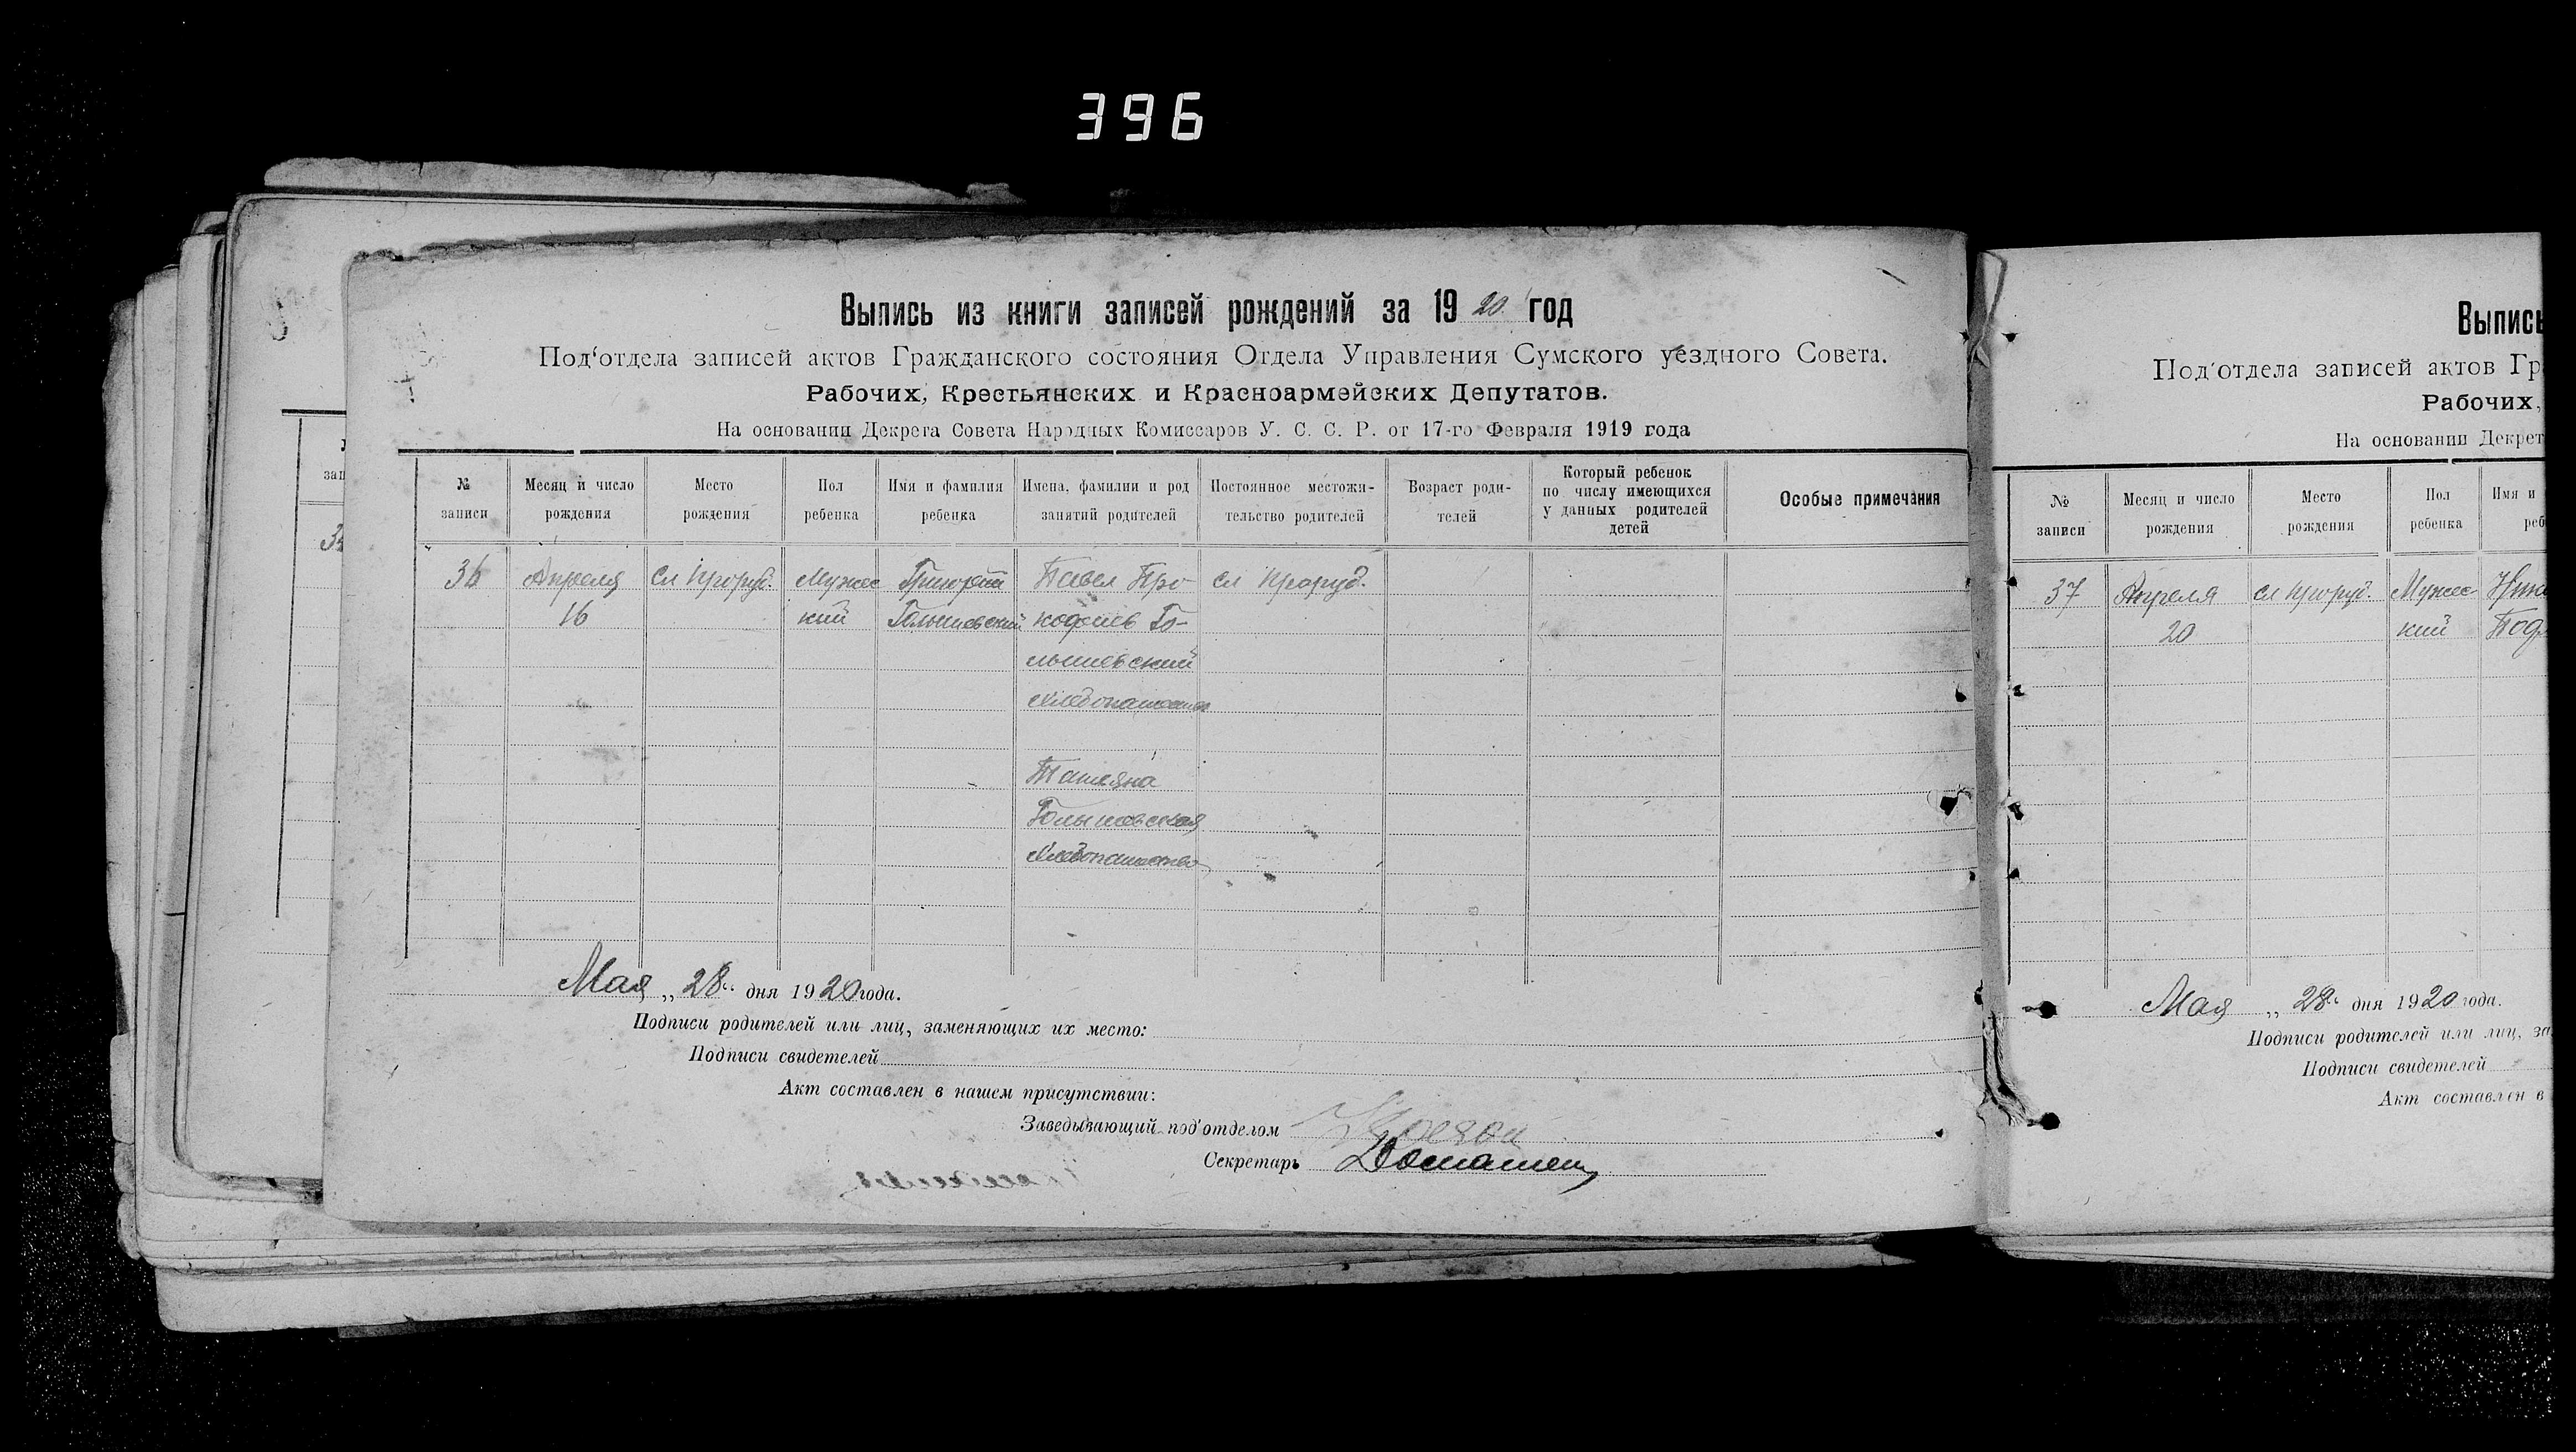 396
Выпись из книги записей рождений за 1920 год
Под‘отдела записей актов Гражданского состояния Отдела Управления Сумского уездного Совета.
Рабочих, Крестьянских и Красноармейских Депутатов.
На основании Декрета Совета Народных Комиссаров У. С. С. Р. от 17-го Февраля 1919 года
№ записи
Месяц и число рождения
Место рождения
Пол ребенка
Имя и фамилия ребенка
Имена, фамилии и род занятий родителей
Постоянное местожи-тельство родителей
Возраст роди-телей
Который ребенок по числу имеющихся у данных родителей детей
Особые примечания
36
Апреля
16
сл
Мужес
кий
Григорий
Голышевский
Павел Про-
кофиев Го-
лышевский
хлебопашество
Татьяна
Голышевская
хлебопашество
сл
Мая „ 28 “ дня 1920 года.
Подписи родителей или лиц, заменяющих их место:
Подписи свидетелей
Акт составлен в нашем присутствии:
Заведывающий под‘отделом
Секретарь
Выпись
Под‘отдела записей актов Гр
Рабочих,
На основании Декрет
№ записи
Месяц и число рождения
Место рождения
Пол ребенка
Имя и
реб
37
Апреля
20
сл
Мужес
кий
Под
Мая „ 28 “ дня 1920 года.
Подписи родителей или лиц, за
Подписи свидетелей
Акт составлен в
зап